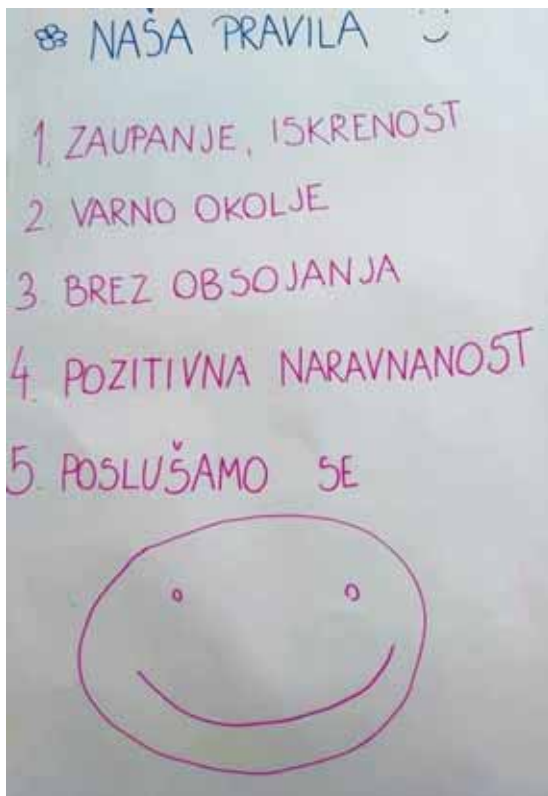 NAŠA PRAVILA
1. ZAUPANJE, ISKRENOST
2. VARNO OKOLJE
3. BREZ OBSOJANJA
4. POZITIVNA NARAVNANOST
5. POSLUŠAMO SE